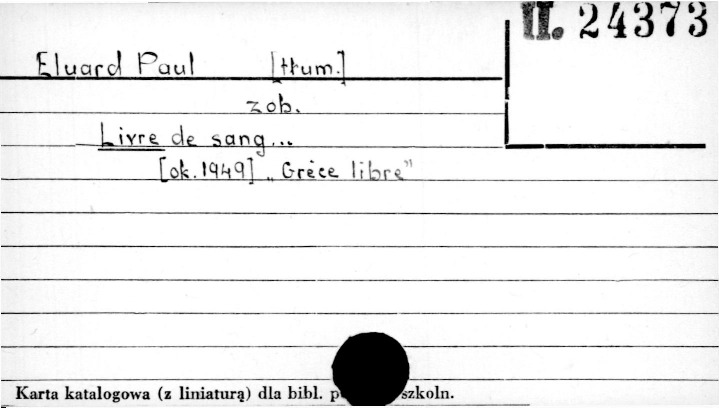 II. 24373
Eluard Paul [tłum.]
zob.
Livre de sang...
[ok. 1949] „Grèce libre”
Karta katalogowa (z liniaturą) dla bibl. szkoln.